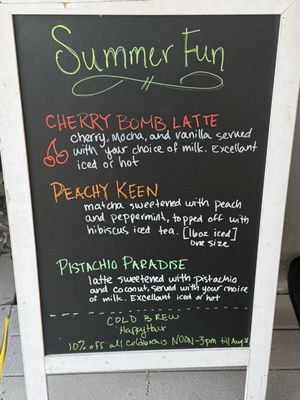 Summer Fun
CHERRY BOMB LATTE
cherry, mocha, and vanilla served
with your choice of milk. Excellent
iced or hot
PEACHY KEEN
matcha sweetened with peach
and peppermint, topped off with
hibiscus iced tea. [16oz iced]
one size
PISTACHIO PARADISE
latte sweetened with pistachio
and coconut, served with your choice
of milk. Excellent iced or hot
COLD BREW
Happy Hour
10% off all Coldbrews NOON-3pm till